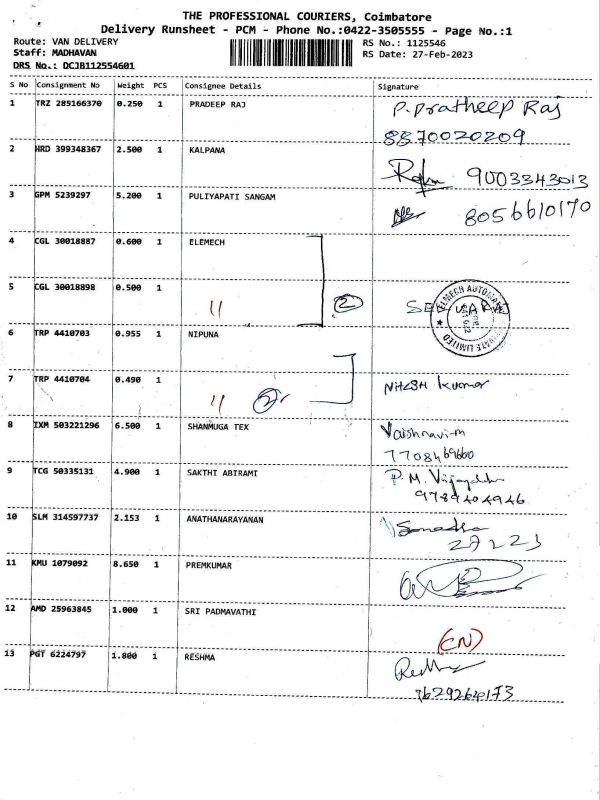 THE PROFESSIONAL COURIERS, Coimbatore
Delivery Runsheet - PCM - Phone No.:0422-3505555 - Page No.:1
Route: VAN DELIVERY
RS No.: 1125546
Staff: MADHAVAN
RS Date: 27-Feb-2023
DRS No.: DCJB112554601
S No Consignment No Weight PCS Consignee Details Signature
1 TRZ 285166370 0.250 1 PRADEEP RAJ P. Pratheep Raj
8870020209
2 HRD 399348367 2.500 1 KALPANA
9003343013
3 GPM 5239297 5.200 1 PULIYAPATI SANGAM
8056610170
4 CGL 30018887 0.600 1 ELEMECH
5 CGL 30018898 0.500 1
11 2
6 TRP 4410703 0.955 1 NIPUNA
7 TRP 4410704 0.490 1 Nitesh kumar
11
8 IXM 503221296 6.500 1 SHANMUGA TEX Vaishnavi-m
7708469660
9 TCG 50335131 4.900 1 SAKTHI ABIRAMI P. M.
9789404946
10 SLM 314597737 2.153 1 ANATHANARAYANAN
27 2 23
11 KMU 1079092 8.650 1 PREMKUMAR
12 AMD 25963845 1.000 1 SRI PADMAVATHI
(CN)
13 PGT 6224797 1.800 1 RESHMA
7629264173